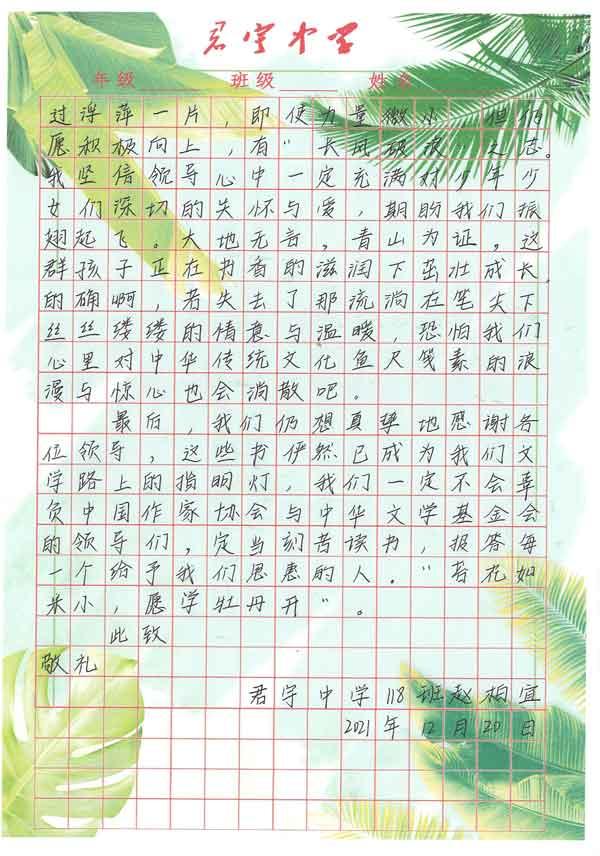 君宇中学
年级 班级 姓名
过浮萍一片，即使力量微小，但仍
愿积极向上，有“长风破浪”之志。
我坚信领导心中一定充满对少年少
女们深切的关怀与爱，期盼我们振
翅起飞。大地无言，青山为证，这
群孩子正在书香的滋润下茁壮成长。
的确啊，若失去了那流淌在笔尖下
丝丝缕缕的情意与温暖，恐怕我们
心里对中华传统文化鱼尺笺素的浪
漫与惊心也会消散吧。
最后，我们仍想真挚地感谢各
位领导，这些书俨然已成为我们文
学路上的指明灯，我们一定不会辜
负中国作家协会与中华文学基金会
的领导们，定当刻苦读书，报答每
一个给予我们恩惠的人。“苔花如
米小，愿学牡丹开”。
此致
敬礼
君宇中学118班赵柏宜
2021年12月20日